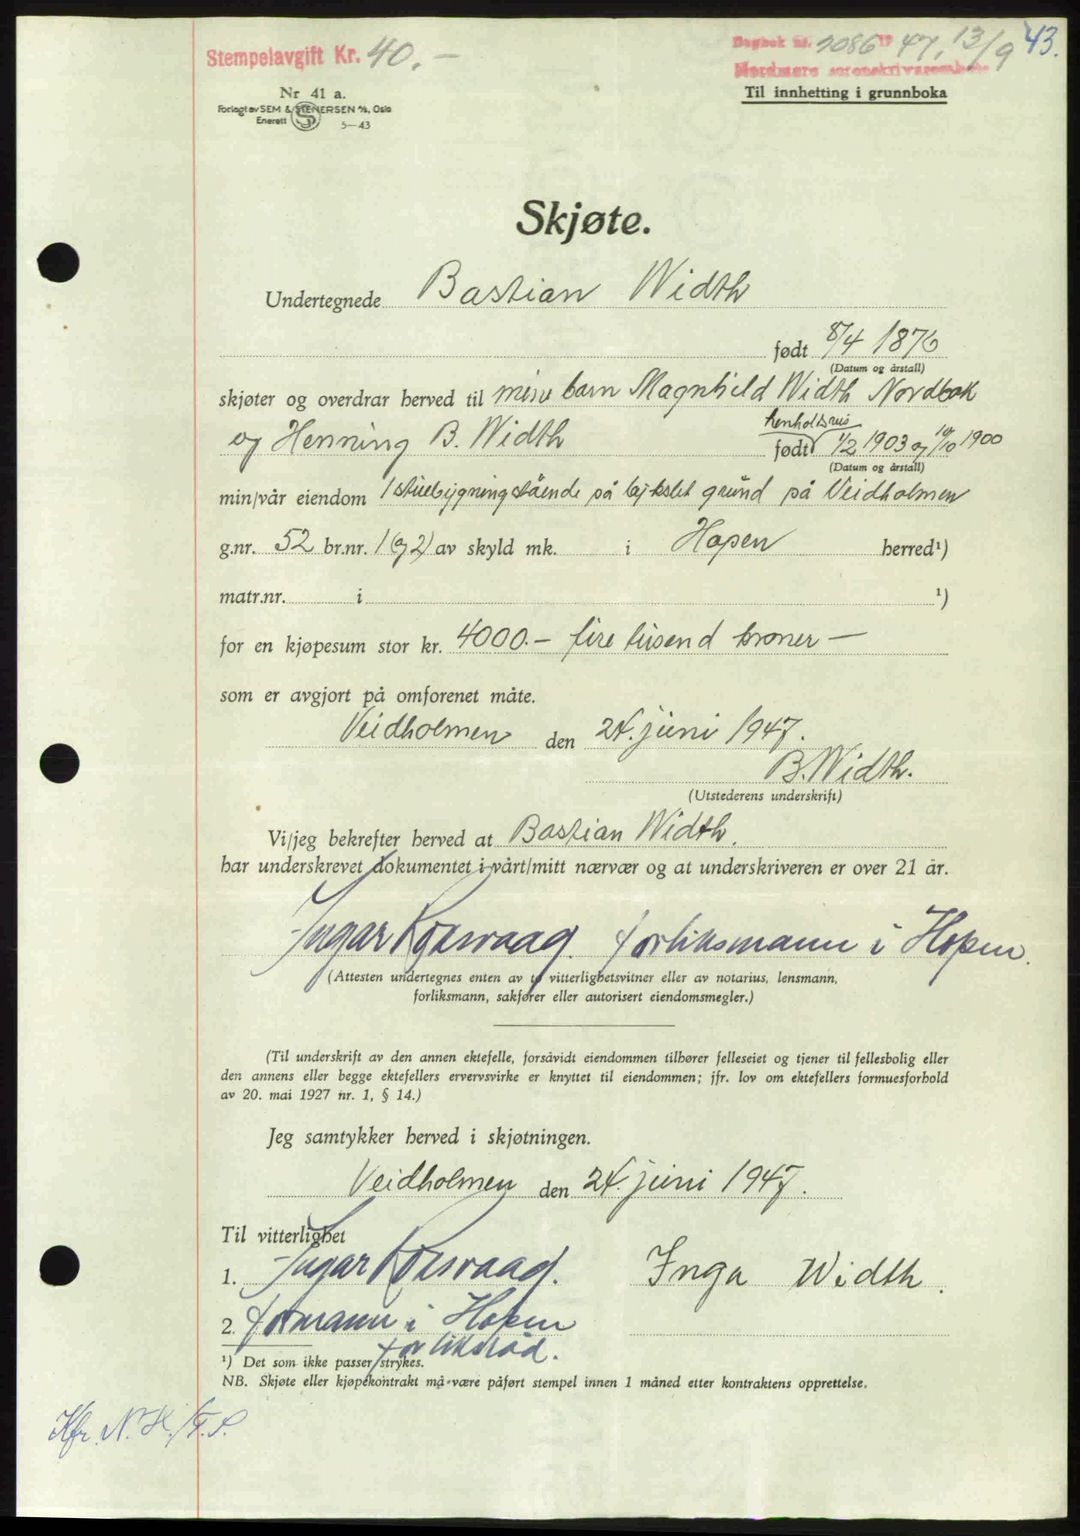 Stempelavgift Kr. 40.-
Dagbok nr. 2086 19 47, 13/9 43.
Nordmøre sorenskriverembete
Nr 41 a.
Forlagt av SEM & STENERSEN A/S, Oslo
Enerett S 5-43
Til innhefting i grunnboka
Skjøte.
Undertegnede Bastian Width
født 8/4 1876
(Datum og årstall)
skjøter og overdrar herved til mine barn Magnhild Width Nordbak
og Henning B. Width
henholdsvis
født 1/2 1903 og 19/10 1900
(Datum og årstall)
min/vår eiendom 1 stuebygning stående på bykslet grund på Veidholmen
g.nr. 52 br.nr. 1 (og 2) av skyld mk. i Hopen herred¹)
matr.nr. i ¹)
for en kjøpesum stor kr. 4000.- fire tusend kroner —
som er avgjort på omforenet måte.
Veidholmen den 24. juni 1947.
B. Width.
(Utstederens underskrift)
Vi/jeg bekrefter herved at Bastian Width.
har underskrevet dokumentet i vårt/mitt nærvær og at underskriveren er over 21 år.
Ingar Rosvaag. forliksmann i Hopen.
(Attesten undertegnes enten av to vitterlighetsvitner eller av notarius, lensmann,
forliksmann, sakfører eller autorisert eiendomsmegler.)
(Til underskrift av den annen ektefelle, forsåvidt eiendommen tilhører felleseiet og tjener til fellesbolig eller
den annens eller begge ektefellers ervervsvirke er knyttet til eiendommen; jfr. lov om ektefellers formuesforhold
av 20. mai 1927 nr. 1, § 14.)
Jeg samtykker herved i skjøtningen.
Veidholmen den 24. juni 1947.
Til vitterlighet
1. Ingar Rosvaag. Inga Width.
2. formann i Hopen
forliksråd.
¹) Det som ikke passer strykes.
NB. Skjøte eller kjøpekontrakt må være påført stempel innen 1 måned etter kontraktens opprettelse.
Kfr. N. H./T. S.